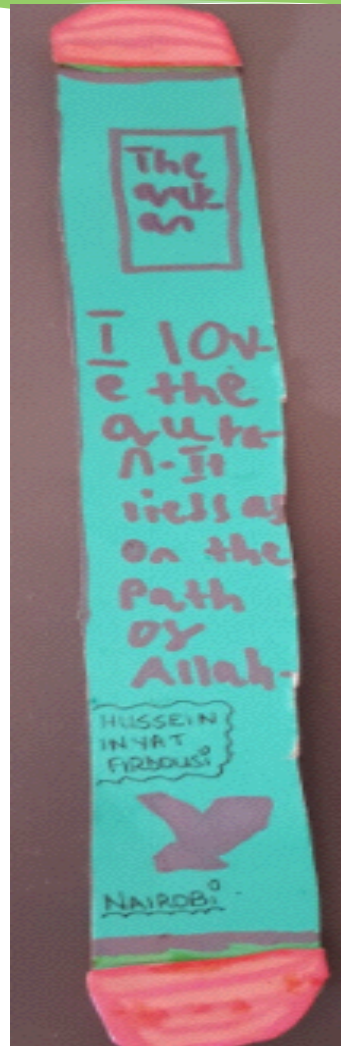 The
I lov-
e the
qura-
n-It
as
on the
Path
of
Allah-
HUSSEIN
INYAT
FIRDOUSI
NAIROBI